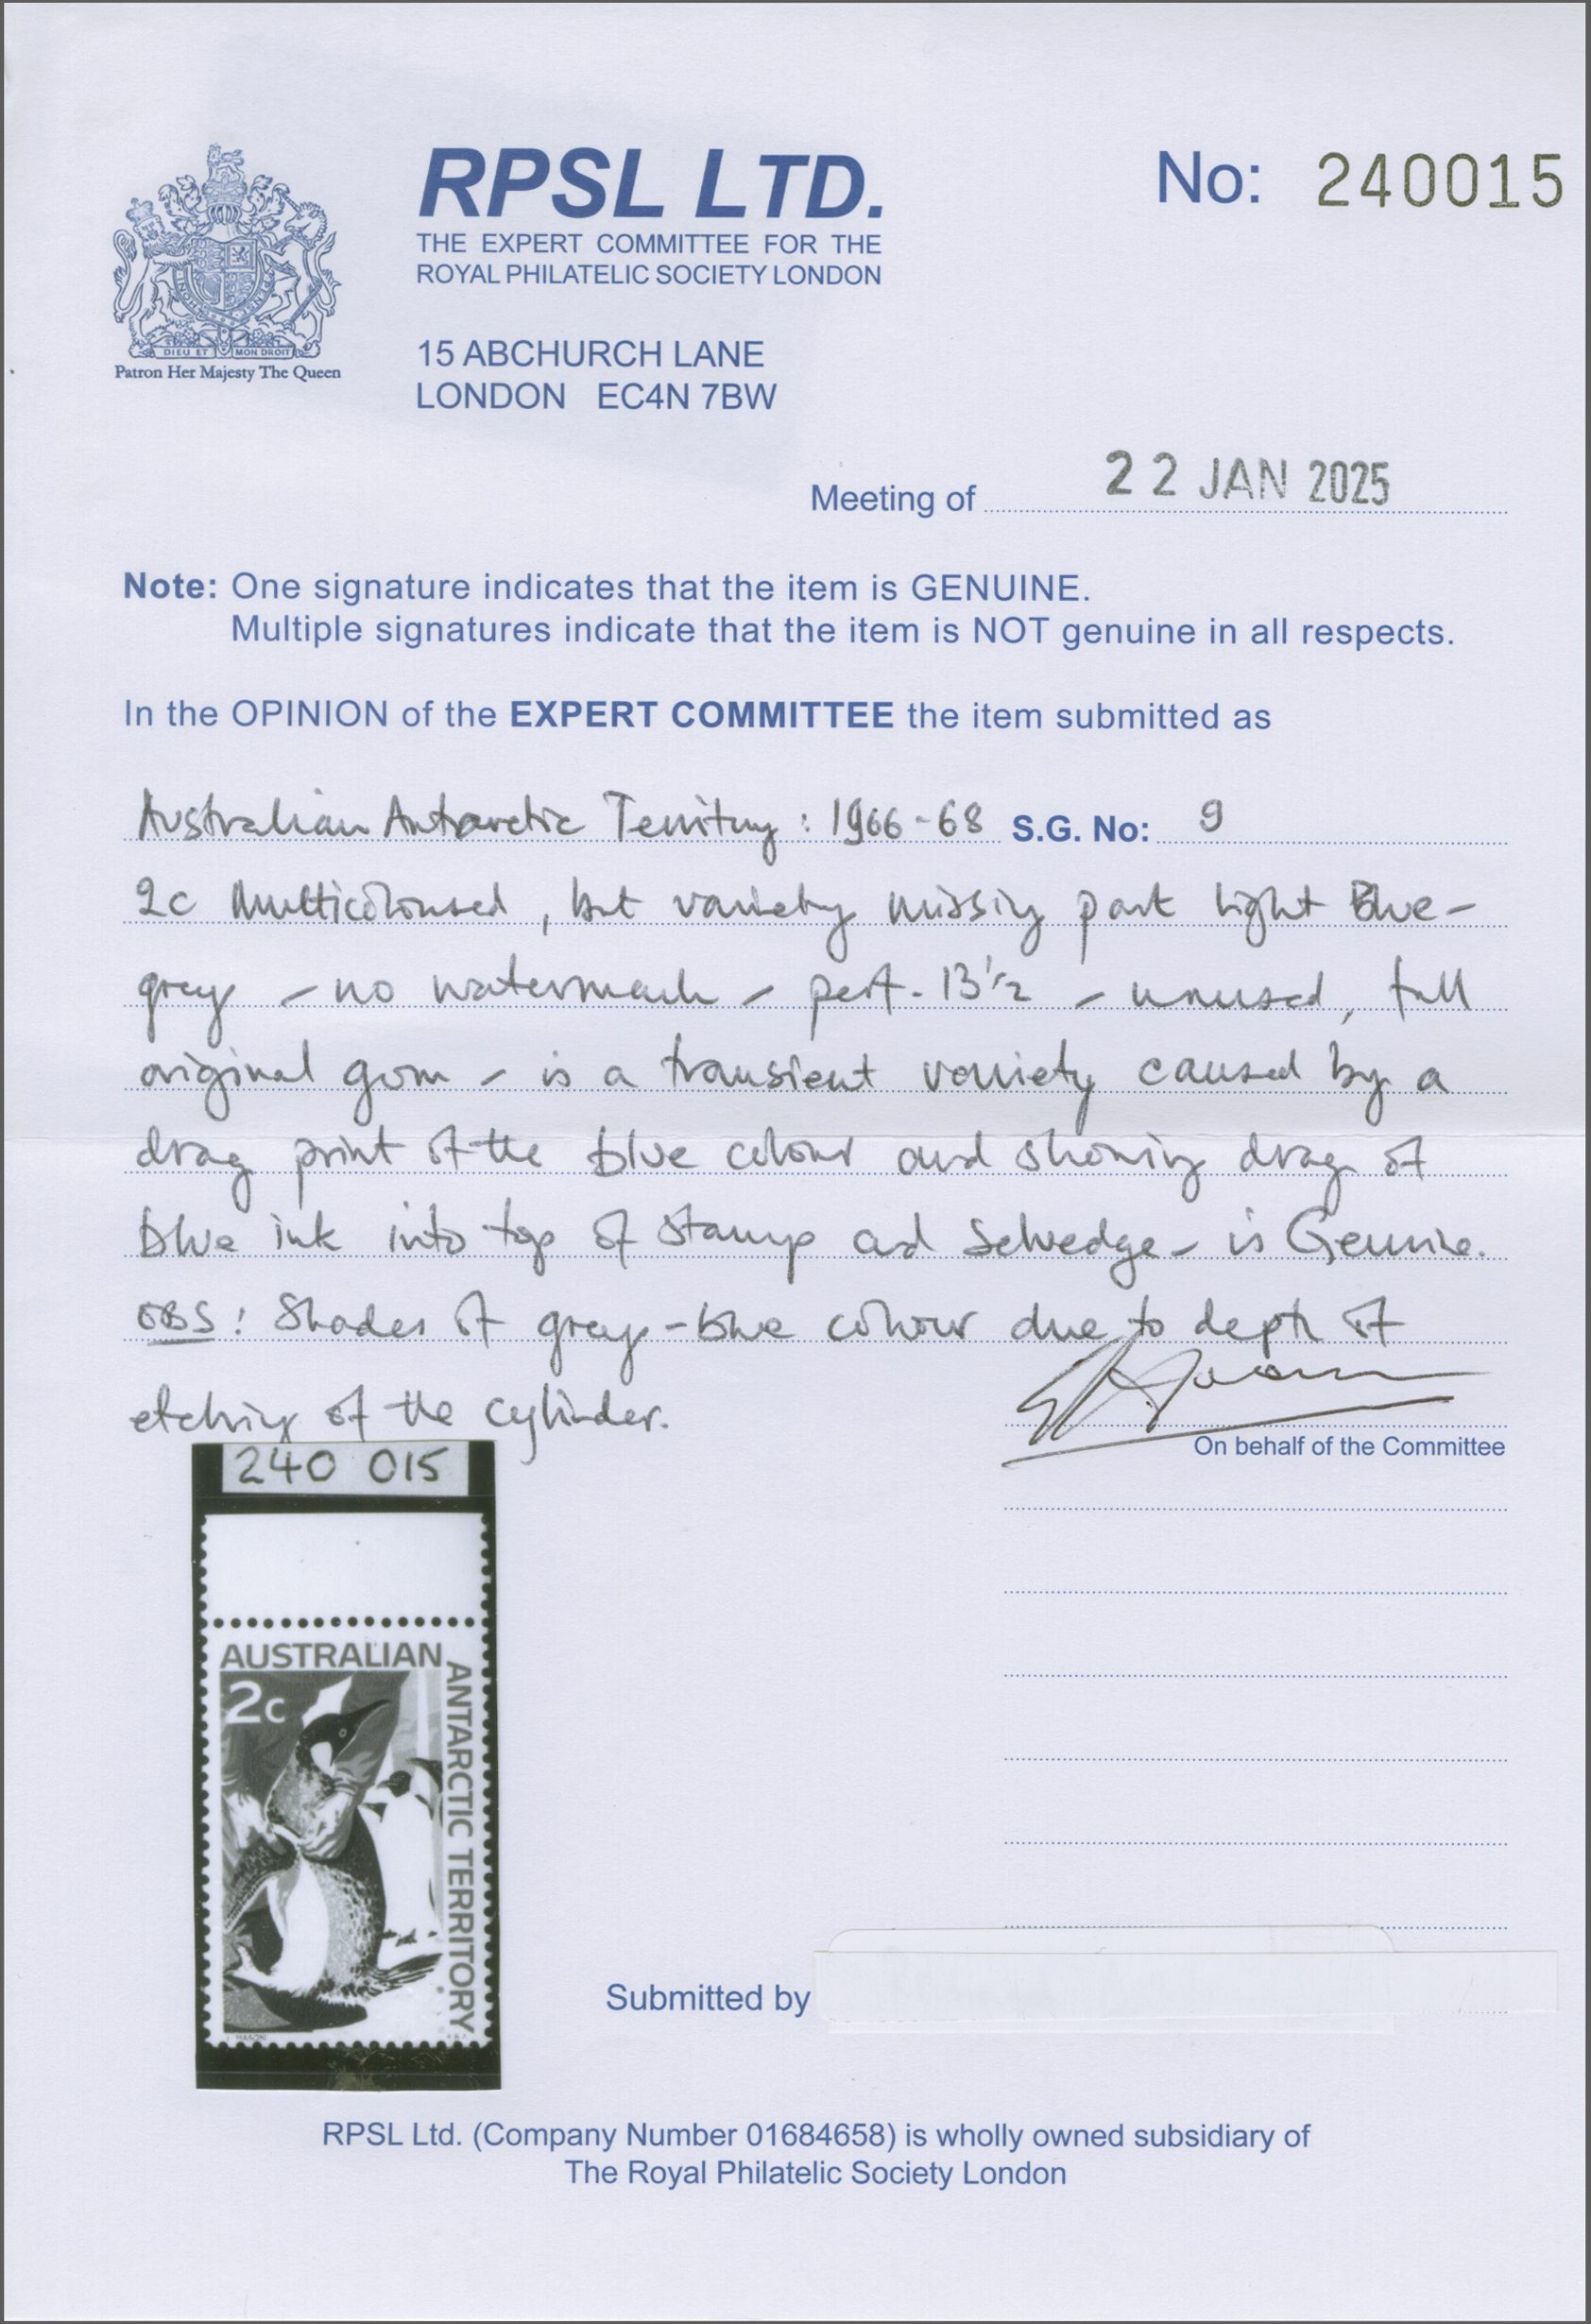 RPSL LTD.
THE EXPERT COMMITTEE FOR THE
ROYAL PHILATELIC SOCIETY LONDON
No: 240015
DIEU ET MON DROIT
Patron Her Majesty The Queen
15 ABCHURCH LANE
LONDON EC4N 7BW
Meeting of 22 JAN 2025
Note: One signature indicates that the item is GENUINE.
Multiple signatures indicate that the item is NOT genuine in all respects.
In the OPINION of the EXPERT COMMITTEE the item submitted as
Australian Antarctic Territory: 1966-68 S.G. No: 9
2c Multicoloured, but variety missing part light Blue-
grey - no watermark - perf. 13½ - unused, full
original gum - is a transient variety caused by a
drag print of the blue colour and showing drag of
blue ink into top of stamp and selvedge - is Genuine.
OBS: Shades of grey-blue colour due to depth of
etching of the cylinder.
On behalf of the Committee
240 015
AUSTRALIAN
ANTARCTIC TERRITORY
2c
MASON
Submitted by
RPSL Ltd. (Company Number 01684658) is wholly owned subsidiary of
The Royal Philatelic Society London